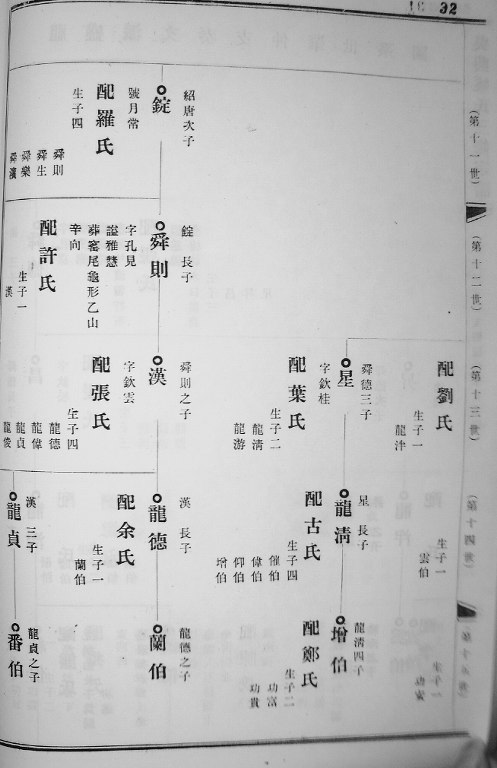 32
(第十一世)
紹唐次子
錠
號月常
配羅氏
生子四
舜則
舜生
舜樂
舜漢
(第十二世)
錠 長子
舜則
字孔見
諡雅慧
葬窰尾龜形乙山
辛向
配許氏
生子一
漢
(第十三世)
配劉氏
生子一
龍泮
舜德三子
星
字欽桂
配葉氏
生子二
龍清
龍游
舜則之子
漢
字欽雲
配張氏
生子四
龍德
龍偉
龍貞
龍俊
(第十四世)
生子一
雲伯
星 長子
龍清
配古氏
生子四
催伯
偉伯
仰伯
增伯
漢 長子
龍德
配余氏
生子一
蘭伯
漢 三子
龍貞
(第十五世)
生子一
功安
龍清四子
增伯
配鄭氏
生子二
功富
功貴
龍德之子
蘭伯
龍貞之子
番伯